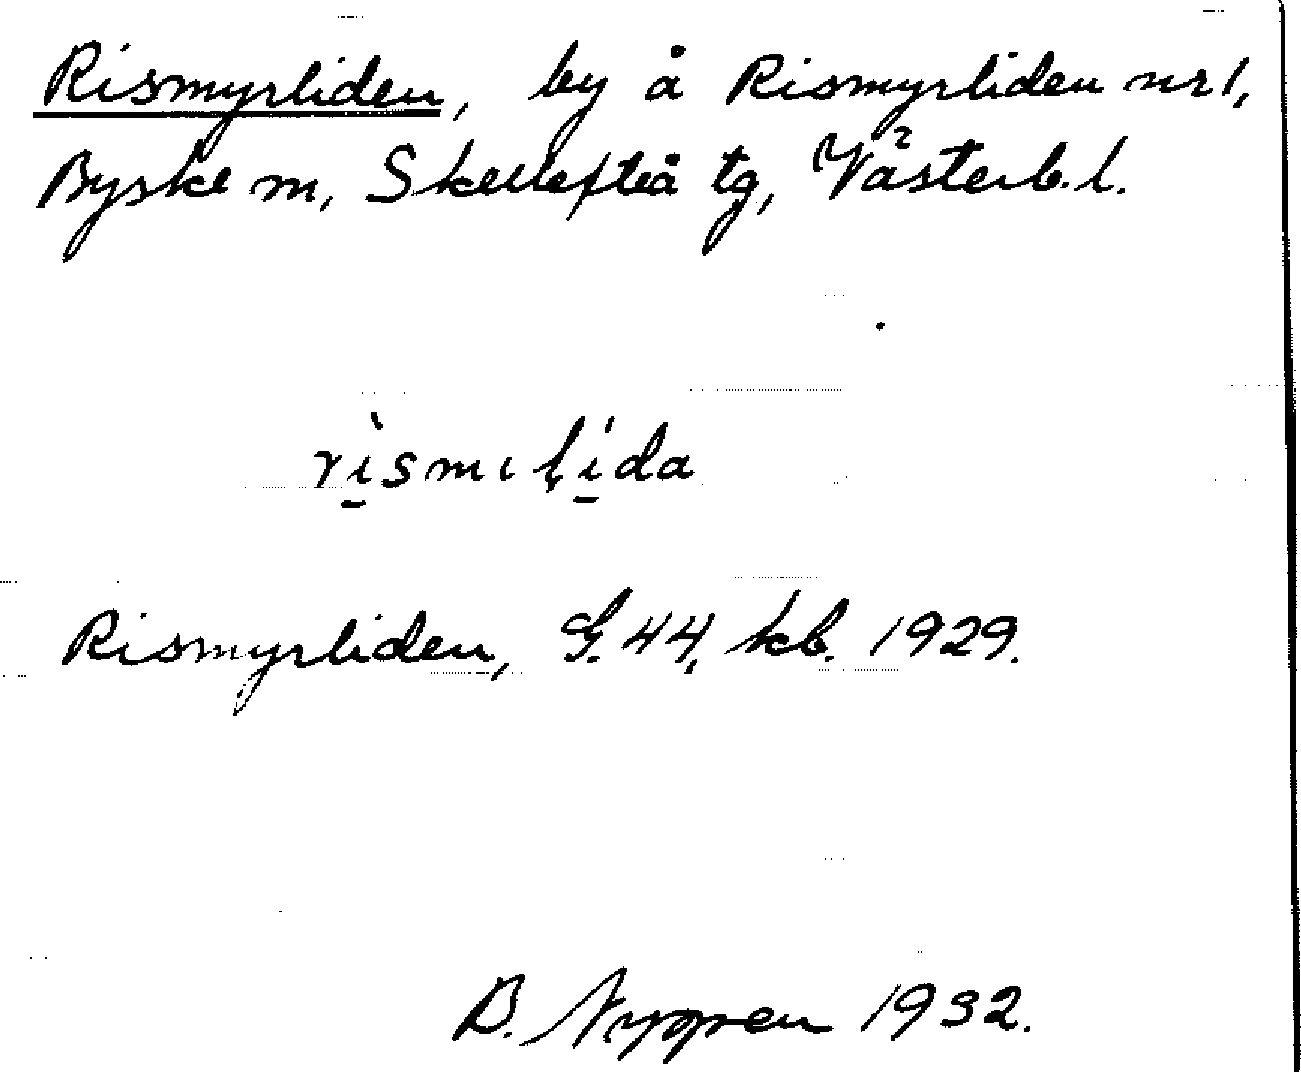 Rismyrliden, by å Rismyrliden nr 1,
Byske m, Skellefteå tg, Västerb. l.
rı̱̀smıḷı̱́da
Rismyrliden, G. 44, kb. 1929.
B. Nygren 1932.